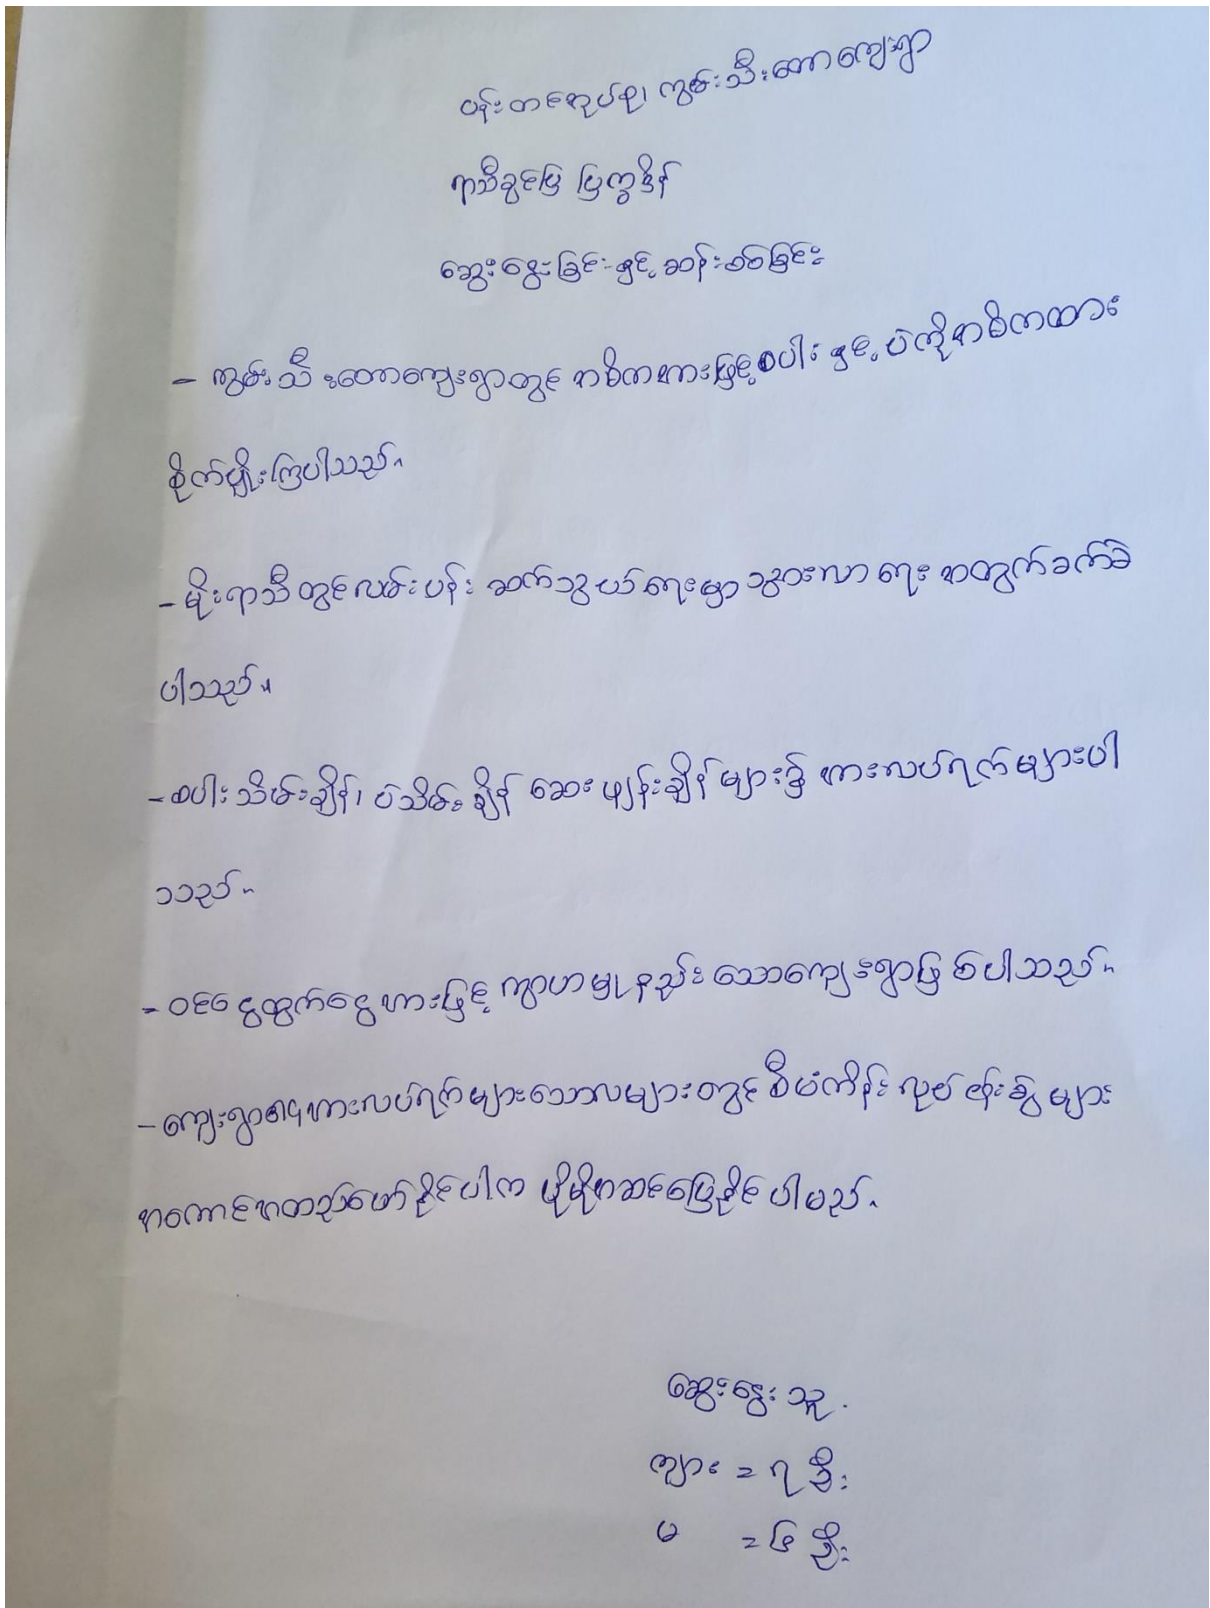 ပန်းတင်အုပ်စု၊ ကွမ်းသီးတောကျေးရွာ
ရာသီခွင်ပြ ပြက္ခဒိန်
ဆွေးနွေးခြင်းနှင့် ဆန်းစစ်ခြင်း
- ကွမ်းသီးတောကျေးရွာတွင် အဓိကအားဖြင့်စပါး နှင့် ပဲကိုအဓိကထား
စိုက်ပျိုးကြပါသည်။
- မိုးရာသီတွင်လမ်းပန်း ဆက်သွယ်ရေးမှာ သွားလာရေး အတွက်ခက်ခဲ
ပါသည်။
- စပါးသိမ်းချိန်၊ ပဲသိမ်းချိန် ဆေးဖျန်းချိန်များ၌ အားလပ်ရက်များပါ
သည်။
- ဝင်ငွေထွက်ငွေအားဖြင့် ကွာဟမှုနည်းသောကျေးရွာဖြစ်ပါသည်။
- ကျေးရွာ၏အားလပ်ရက်များသောလများတွင် စီမံကိန်းလုပ်ငန်းခွဲများ
အကောင်အထည်ဖော်နိုင်ပါက ပိုမိုအဆင်ပြေနိုင်ပါမည်။
ဆွေးနွေးသူ
ကျား = ၇ ဦး
မ = ၆ ဦး